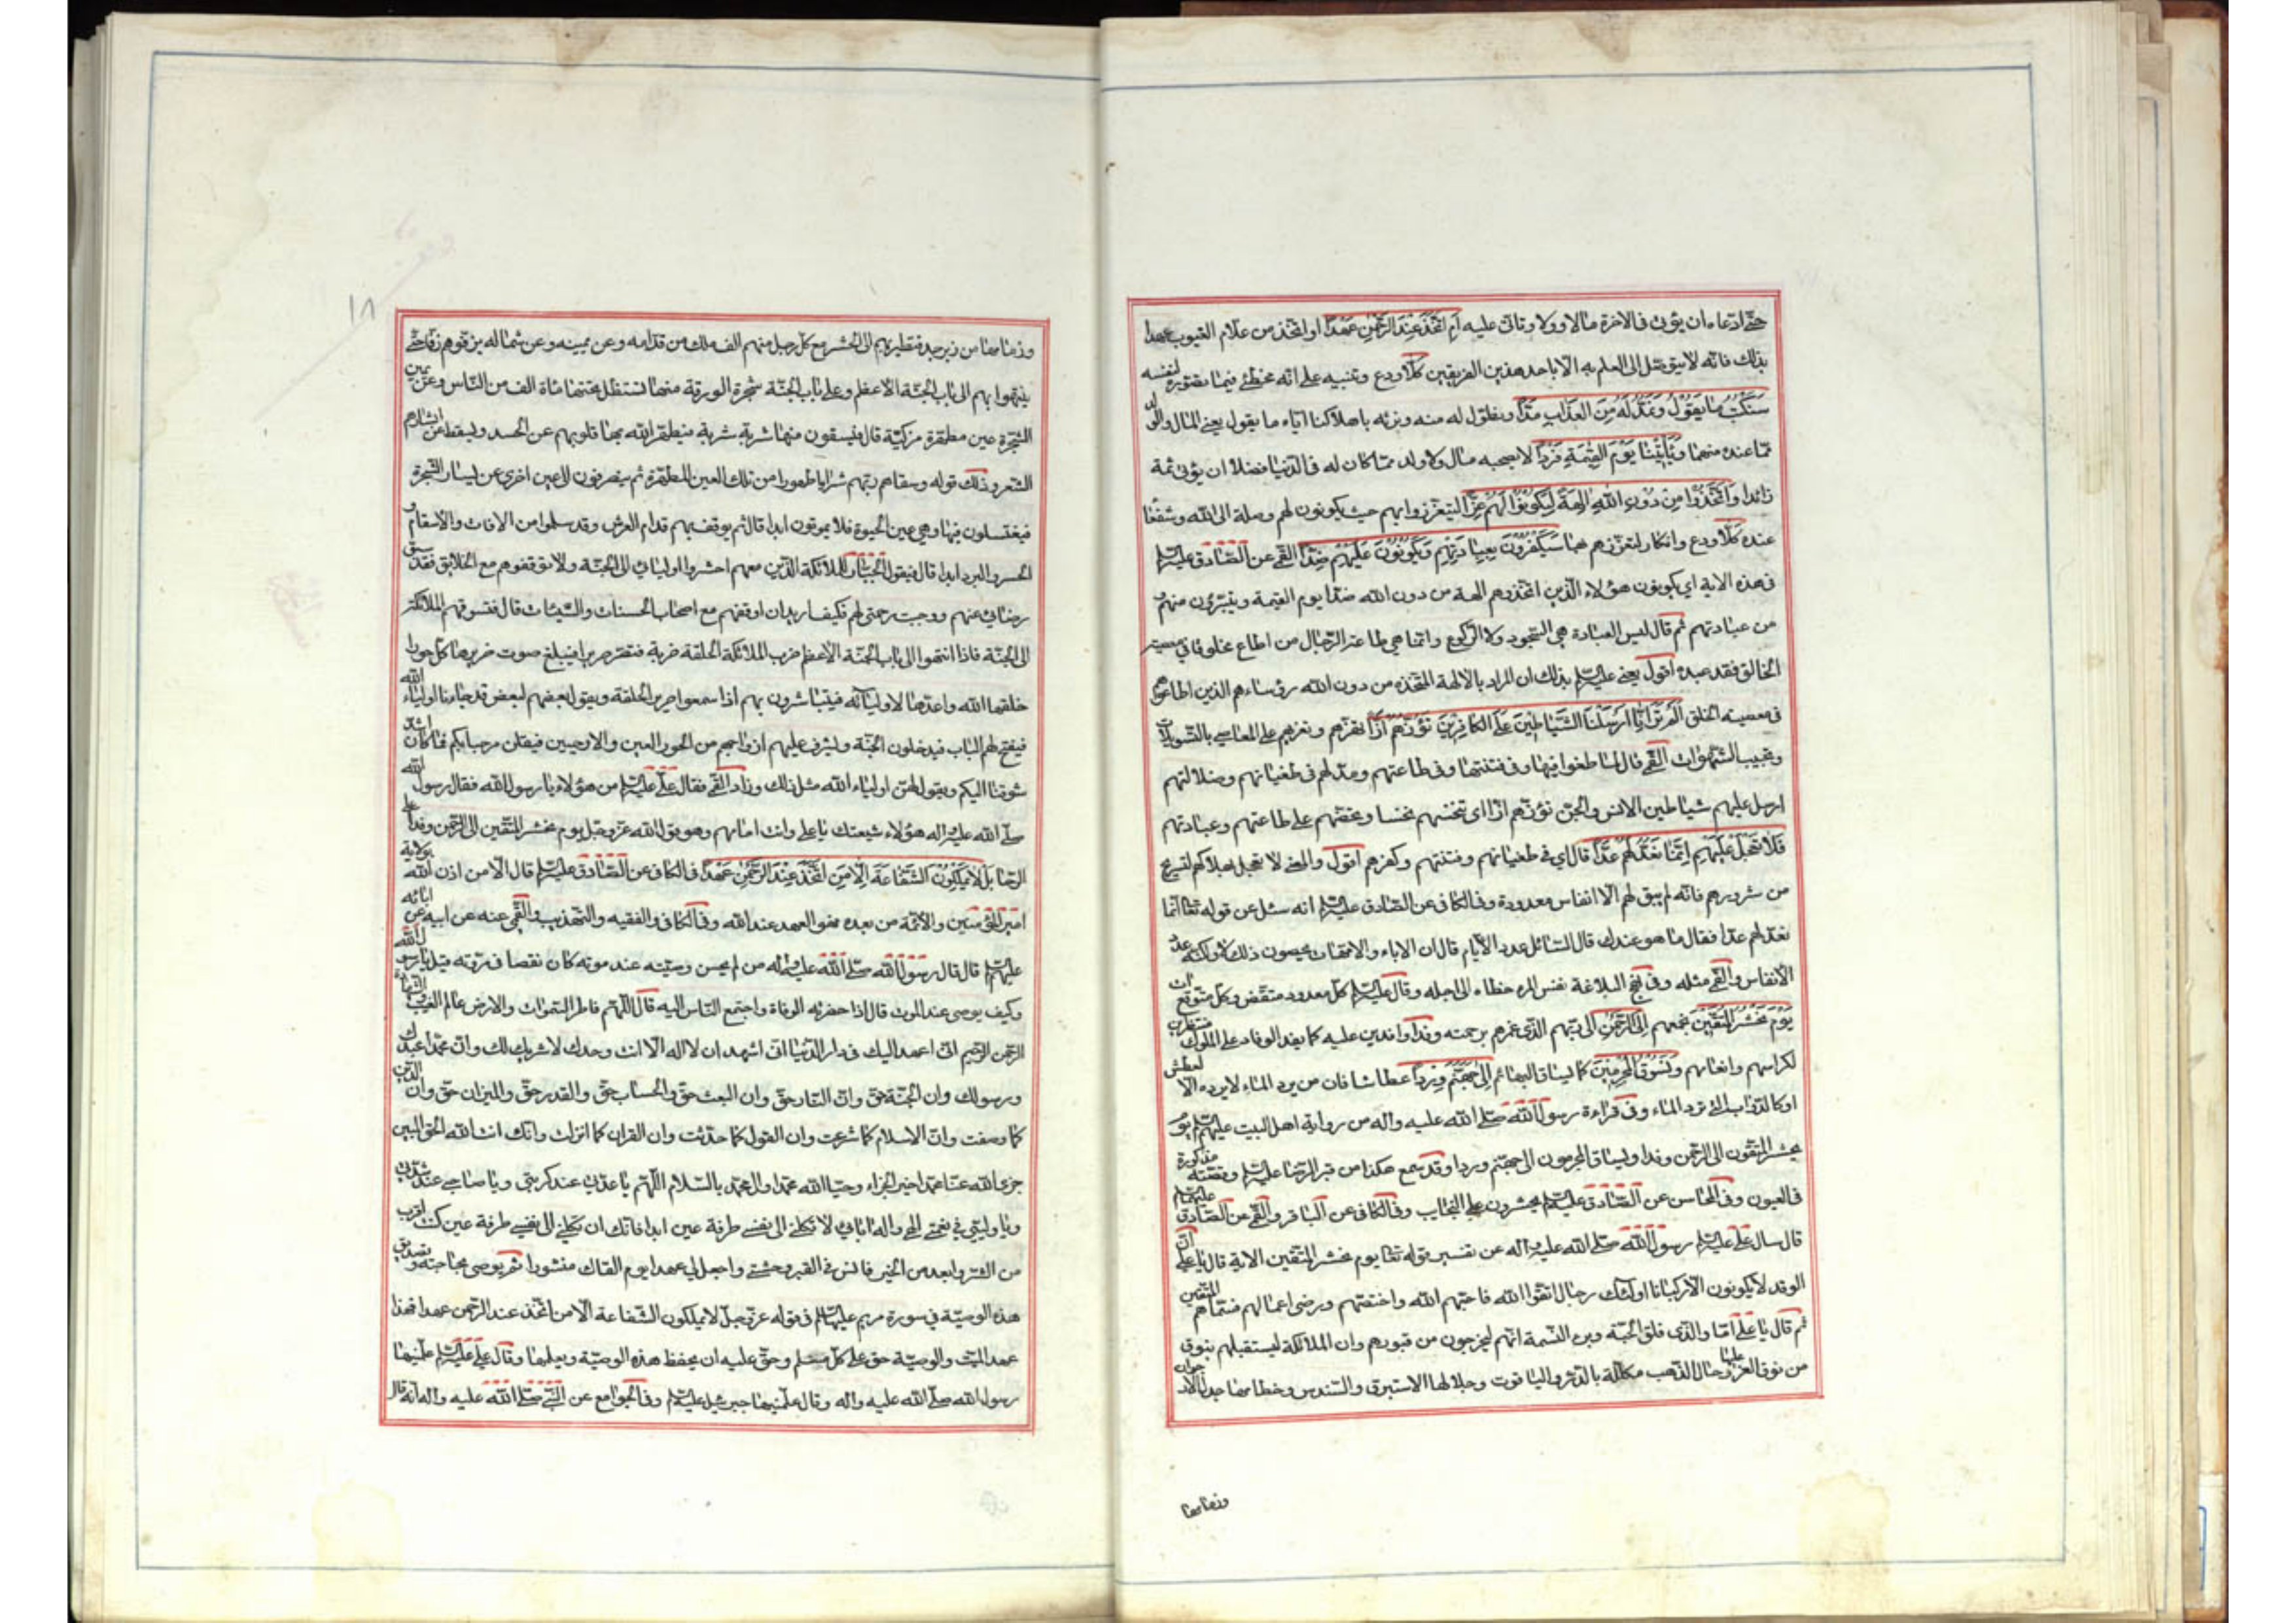 حتى ادعاء ان يؤتى في الاخرة مالا وولدا وتالى عليه ام اتخذ عند الرحمن عهدا او اتخذ من علام الغيوب عهدا
بذلك فانه لا يتوصل الى العلم به الا باحد هذين الطريقين كلا ردع وتنبيه على انه مخطئ فيما تصوره لنفسه
سنكتب ما يقول ونمد له من العذاب مدا ونطول له منه ونرثه باهلاكنا اياه ما يقول يعني المال والولد
مما عنده منهما ويأتينا يوم القيمة فردا لا يصحبه مال ولا ولد مما كان له في الدنيا فضلا ان يؤتى ثمة
زائدا واتخذوا من دون الله الهة ليكونوا لهم عزا ليتعززوا بهم حيث يكونون لهم وصلة الى الله وشفعاء
عنده كلا ردع وانكار لتعززهم بها سيكفرون بعبادتهم ويكونون عليهم ضدا القمي عن الصادق عليه السلم
في هذه الاية اي يكونون هؤلاء الذين اتخذوهم الهة من دون الله ضدا يوم القيمة ويتبرؤن منهم و
من عبادتهم ثم قال ليس العبادة هي السجود ولا الركوع وانما هي طاعة الرجال من اطاع مخلوقا في معصية
الخالق فقد عبده اقول يعني عليه السلم بذلك ان المراد بالالهة المتخذة من دون الله رؤساءهم الذين اطاعوهم
في معصية الخلق الم تر انا ارسلنا الشياطين على الكافرين تؤزهم ازا تهزهم وتغريهم على المعاصي بالتسويلات
وتحبيب الشهوات القمي قال لما طغوا فيها وفي فتنتها وفي طاعتهم ومد لهم في طغيانهم وضلالتهم
ارسل عليهم شياطين الانس والجن تؤزهم ازا اي تنخسهم نخسا وتحضهم على طاعتهم وعبادتهم
فلا تعجل عليهم انما نعد لهم عدا قال اي في طغيانهم وفتنتهم وكفرهم اقول والمعنى لا تعجل بهلاكهم لتستريح
من شرورهم فانه لم يبق لهم الا انفاس معدودة وفي الكافي عن الصادق عليه السلم انه سئل عن قوله تعا انما
نعد لهم عدا فقال ما هو عندك قال السائل عدد الايام قال ان الاباء والامهات يحصون ذلك لا ولكنه عدد
الانفاس والقمي مثله وفي نهج البلاغة نفس المرء خطاه الى اجله وقال عليه السلم كل معدود منقض وكل متوقع ات
يوم نحشر المتقين نجمعهم الى الرحمن الى ربهم الذي غمرهم برحمته وفدا وافدين عليه كما يفد الوفاد على الملوك منتظرين
لكرامتهم وانعامهم ونسوق المجرمين كما يساق البهائم الى جهنم وردا عطاشا فان من يرد الماء لا يرده الا لعطش
او كالدواب التي ترد الماء وفي قراءة رسول الله صلى الله عليه واله من رواية اهل البيت عليهم السلم يوم
يحشر المتقون الى الرحمن وفدا ويساق المجرمون الى جهنم وردا وقد سمع هكذا من قبر الرضا عليه السلم وقصته مذكورة
في العيون وفي المحاسن عن الصادق عليه السلم يحشرون على النجايب وفي الكافي عن الباقر والقمي عن الصادق عليهما السلم
قال سال علي عليه السلم رسول الله صلى الله عليه واله عن تفسير قوله تعا يوم نحشر المتقين الاية قال يا علي ان
الوفد لا يكونون الا ركبانا اولئك رجال اتقوا الله فاحبهم الله واختصهم ورضي اعمالهم فسماهم المتقين
ثم قال يا علي اما والذي فلق الحبة وبرء النسمة انهم ليخرجون من قبورهم وان الملائكة ليستقبلهم بنوق
من نوق العز عليها رحال الذهب مكللة بالدر والياقوت وجلالها الاستبرق والسندس وخطامها جدل الارجوان
وزمامها
١٨
وزمامها من زبرجد فتطير بهم الى المحشر مع كل رجل منهم الف ملك من قدامه وعن يمينه وعن شماله يزفونهم زفا حتى
ينتهوا بهم الى باب الجنة الاعظم وعلى باب الجنة شجرة الورقة منها تستظل تحتها مأة الف من الناس وعن يمين
الشجرة عين مطهرة مزكية قال فيسقون منها شربة شربة فيطهر الله بها قلوبهم عن الحسد ويسقط عن ابشارهم
الشعر وذلك قوله وسقاهم ربهم شرابا طهورا من تلك العين المطهرة ثم يصرفون الى عين اخرى عن يسار الشجرة
فيغتسلون فيها وهي عين الحيوة فلا يموتون ابدا قال ثم يوقف بهم قدام العرش وقد سلموا من الافات والاسقام و
الحر والبرد ابدا قال فيقول الجبار للملائكة الذين معهم احشروا اوليائي الى الجنة ولا توقفوهم مع الخلايق فقد سبق
رضائي عنهم ووجبت رحمتي لهم فكيف اريد ان اوقفهم مع اصحاب الحسنات والسيئات قال فتسوقهم الملائكة
الى الجنة فاذا انتهوا الى باب الجنة الاعظم ضرب الملائكة الحلقة ضربة فتصر صريرا فيبلغ صوت صريرها كل حوراء
خلقها الله واعدها لاوليائه فيتباشرون بهم اذا سمعوا صرير الحلقة ويقول بعضهم لبعض قد جاءنا اولياء الله
فيفتح لهم الباب فيدخلون الجنة وليشرف عليهم ازواجهم من الحور العين والادميين فيقلن مرحبا بكم فما كان اشد
شوقنا اليكم ويقول لهن اولياء الله مثل ذلك وزاد القمي فقال علي عليه السلم من هؤلاء يا رسول الله فقال رسول الله
صلى الله عليه واله هؤلاء شيعتك يا علي وانت امامهم وهو قول الله عز وجل يوم نحشر المتقين الى الرحمن وفدا على
الرحايل لا يملكون الشفاعة الا من اتخذ عند الرحمن عهدا في الكافي عن الصادق عليه السلم قال الا من اذن الله بولاية
امير المؤمنين والائمة من بعده فهو العهد عند الله وفي الكافي والفقيه والتهذيب والقمي عنه عن ابيه عن ابائه
عليهم السلم قال قال رسول الله صلى الله عليه واله من لم يحسن وصيته عند موته كان نقصا في مروته قيل يا رسول الله
وكيف يوصي عند الموت قال اذا حضرته الوفاة واجتمع الناس اليه قال اللهم فاطر السموات والارض عالم الغيب والشهادة
الرحمن الرحيم اني اعهد اليك في دار الدنيا اني اشهد ان لا اله الا انت وحدك لا شريك لك وان محمدا عبدك
ورسولك وان الجنة حق وان النار حق وان البعث حق والحساب حق والقدر حق والميزان حق وان الدين
كما وصفت وان الاسلام كما شرعت وان القول كما حدثت وان القران كما انزلت وانك انت الله الحق المبين
جزى الله عنا محمدا خير الجزاء وحيا الله محمدا وال محمد بالسلام اللهم يا عدتي عند كربتي ويا صاحبي عند شدتي
ويا وليي في نعمتي الهي واله ابائي لا تكلني الى نفسي طرفة عين ابدا فانك ان تكلني الى نفسي طرفة عين كنت اقرب
من الشر وابعد من الخير فانس في القبر وحشتي واجعل لي عهدا يوم القاك منشورا ثم يوصي بحاجته وتصديق
هذه الوصية في سورة مريم عليها السلم في قوله عز وجل لا يملكون الشفاعة الا من اتخذ عند الرحمن عهدا فهذا
عهد الميت والوصية حق على كل مسلم وحق عليه ان يحفظ هذه الوصية ويعلمها وقال علي عليه السلم علمنيها
رسول الله صلى الله عليه واله وقال علمنيها جبرئيل عليه السلم وفي الجوامع عن النبي صلى الله عليه واله انه قال